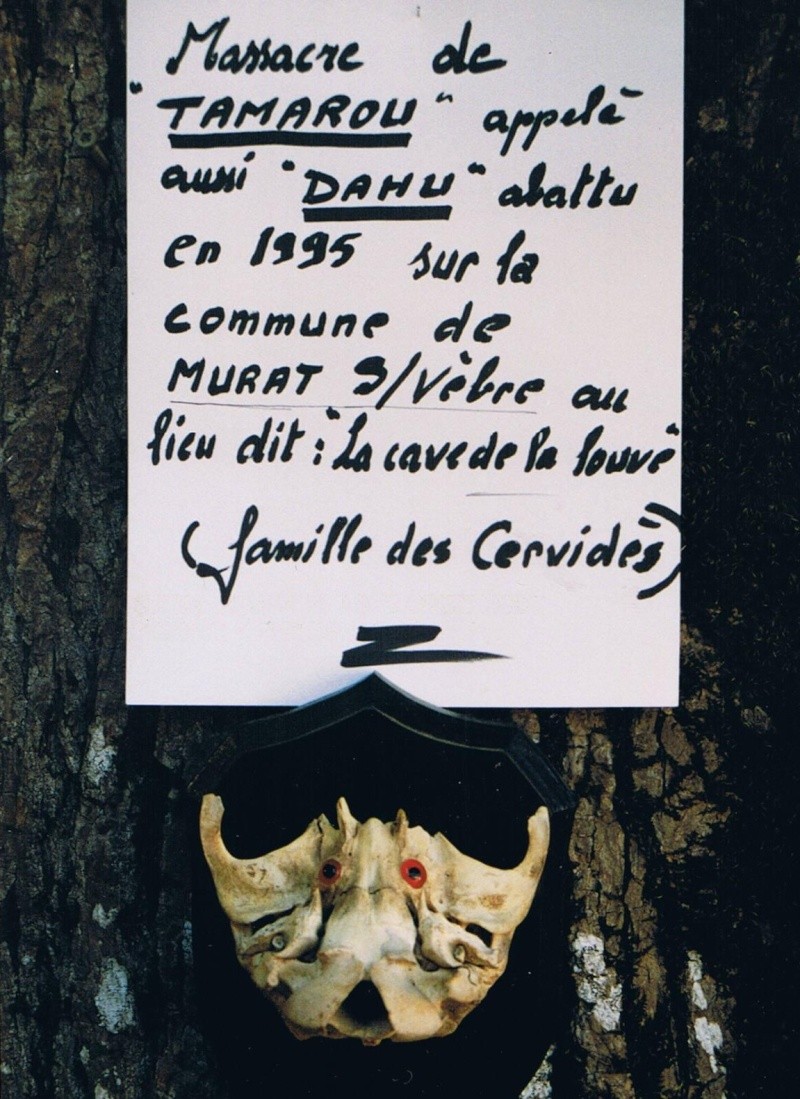 Massacre de
"TAMAROU" appelé
aussi "DAHU" abattu
en 1995 sur la
commune de
MURAT S/Vèbre au
lieu dit : "La cave de la louve"
(famille des Cervidés)